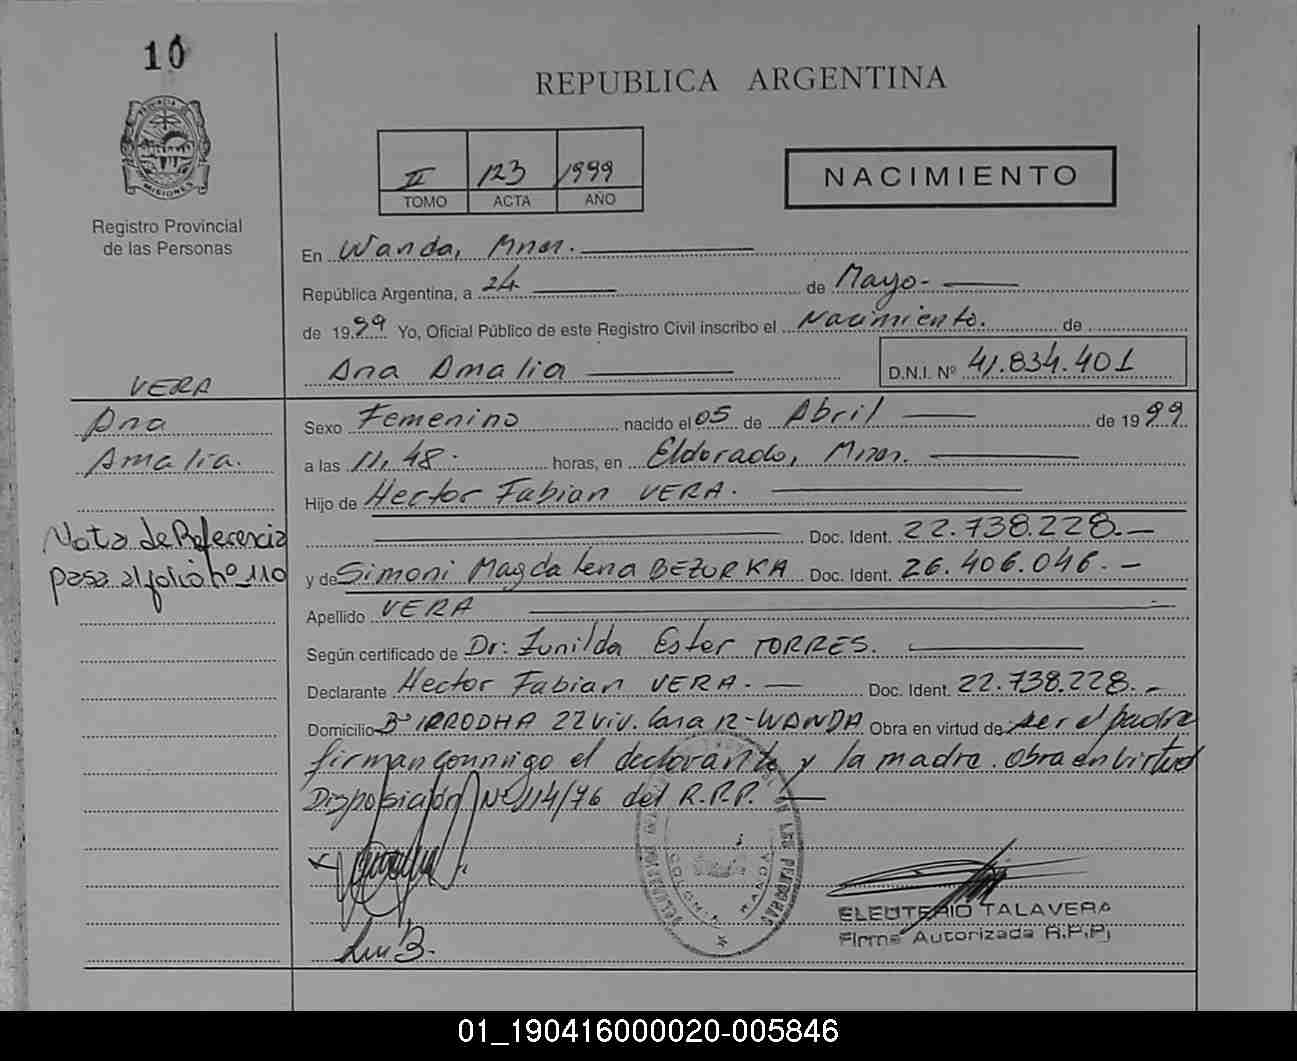 10
PROVINCIA DE
MISIONES
Registro Provincial
de las Personas
REPUBLICA ARGENTINA
II 123 1999
TOMO ACTA AÑO
NACIMIENTO
En Wanda, Mnes.
República Argentina, a 24 de Mayo.-
de 1999 Yo, Oficial Público de este Registro Civil inscribo el Nacimiento. de
Ana Amalia D.N.I. Nº 41.834.401
VERA
Ana
Amalia.
Nota de Referencia
pasa al folio nº 110
Sexo Femenino nacido el 05 de Abril de 1999
a las 11,48. horas, en Eldorado, Mnes.
Hijo de Hector Fabian VERA.
Doc. Ident. 22.738.228.-
y de Simoni Magdalena BEZURKA Doc. Ident. 26.406.046.-
Apellido VERA
Según certificado de Dr: Zunilda Ester TORRES.
Declarante Hector Fabian VERA.- Doc. Ident. 22.738.228.-
Domicilio Bº IRRODHA 22 viv. Casa 12-WANDA Obra en virtud de ser el padre
firman conmigo el declarante y la madre. Obra en virtud
Disposición Nº 114/76 del R.P.P.
DE LAS PERSONAS
COLONIA WANDA
ELEUTERIO TALAVERA
Firma Autorizada R.P.P.
01_190416000020-005846